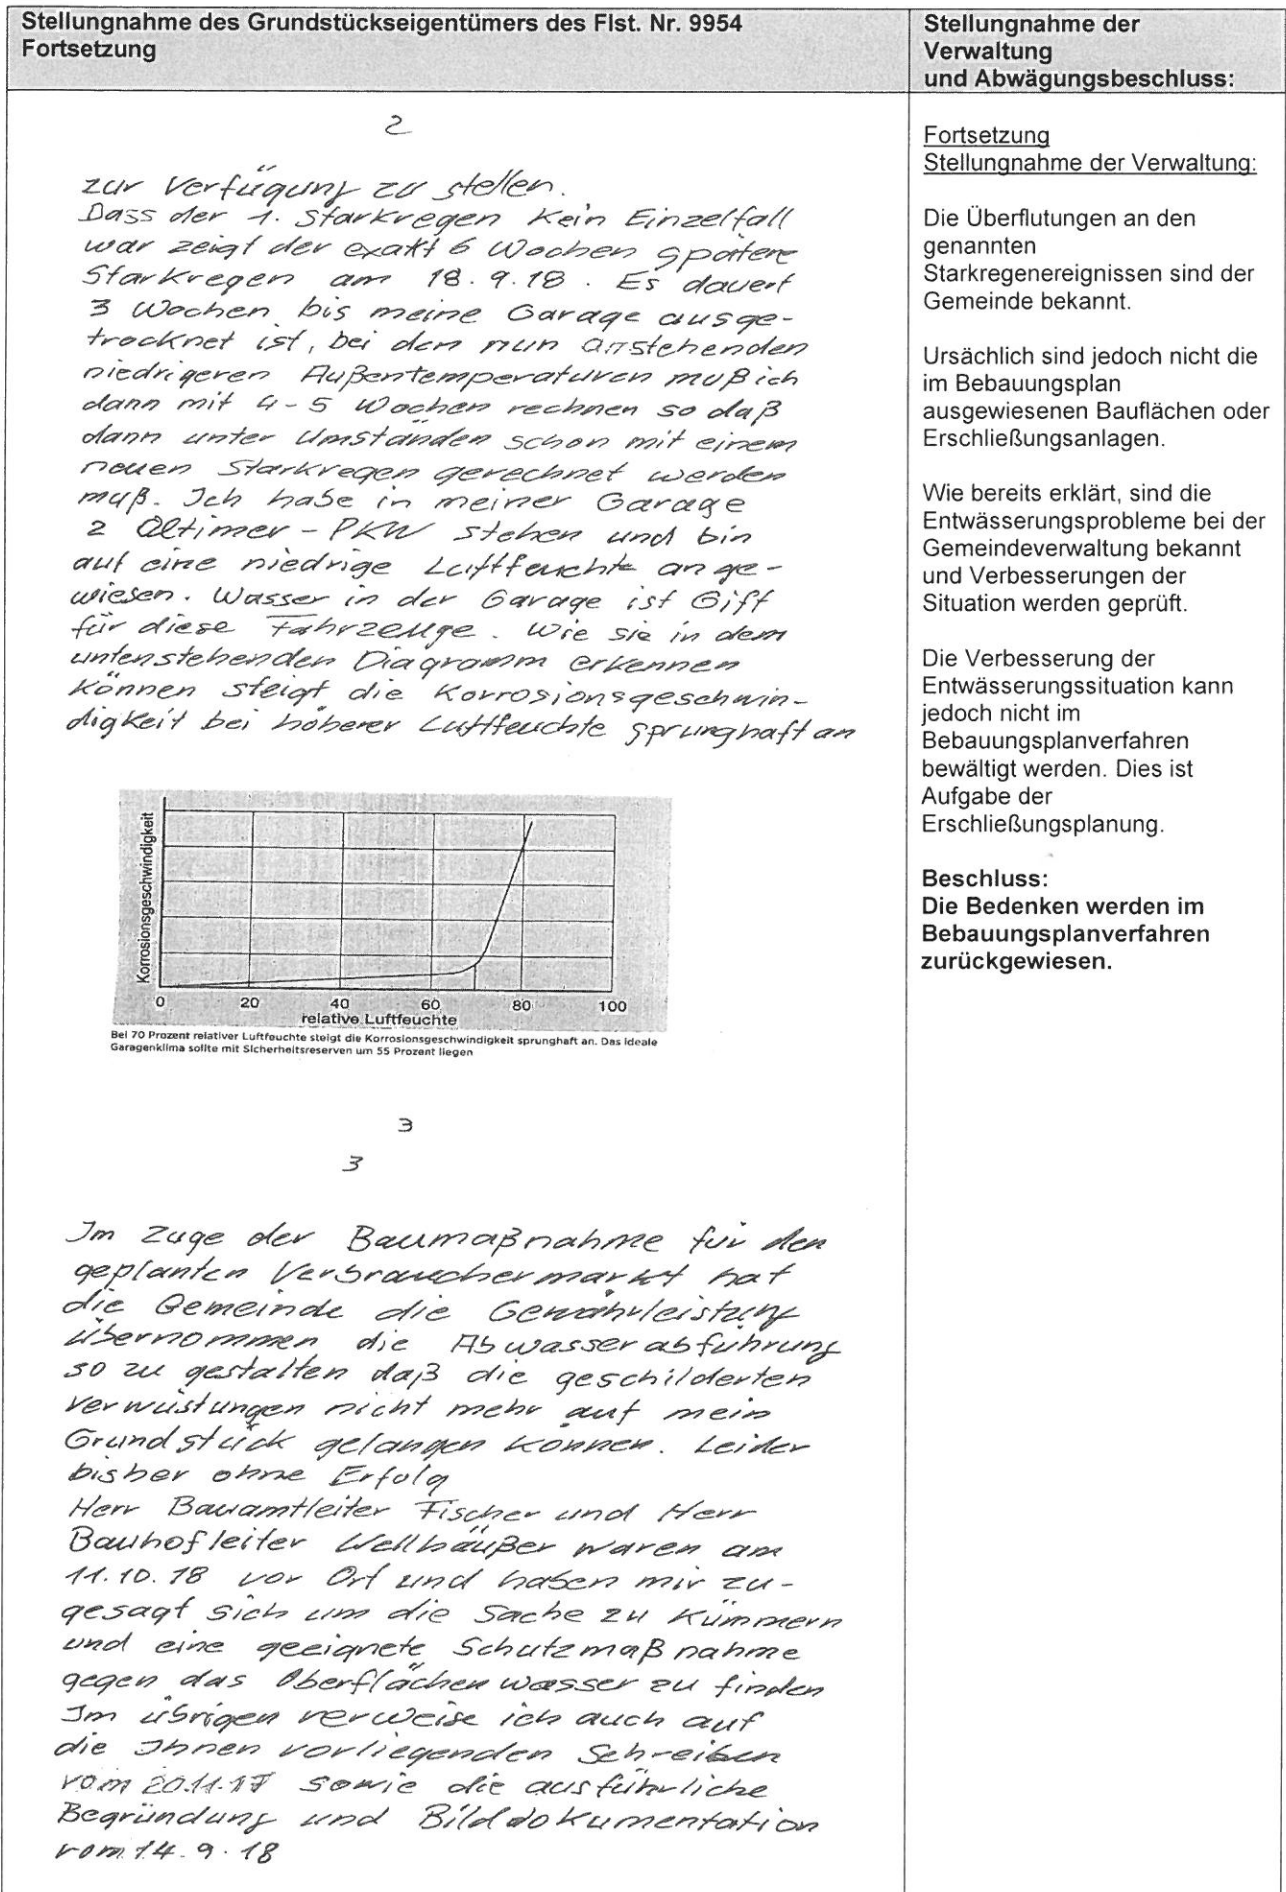 Stellungnahme des Grundstückseigentümers des Flst. Nr. 9954
Fortsetzung
2
zur Verfügung zu stellen.
Dass der 1. Starkregen kein Einzelfall
war zeigt der exakt 6 Wochen spätere
Starkregen am 18.9.18. Es dauert
3 Wochen bis meine Garage ausge-
trocknet ist, bei den nun anstehenden
niedrigeren Außentemperaturen muß ich
dann mit 4-5 Wochen rechnen so daß
dann unter Umständen schon mit einem
neuen Starkregen gerechnet werden
muß. Ich habe in meiner Garage
2 Oltimer-PKW stehen und bin
auf eine niedrige Luftfeuchte ange-
wiesen. Wasser in der Garage ist Gift
für diese Fahrzeuge. Wie sie in dem
untenstehenden Diagramm erkennen
können steigt die Korrosionsgeschwin-
digkeit bei höherer Luftfeuchte sprunghaft an
Korrosionsgeschwindigkeit
0 20 40 60 80 100
relative Luftfeuchte
Bei 70 Prozent relativer Luftfeuchte steigt die Korrosionsgeschwindigkeit sprunghaft an. Das ideale
Garagenklima sollte mit Sicherheitsreserven um 55 Prozent liegen
3
3
Im Zuge der Baumaßnahme für den
geplanten Verbrauchermarkt hat
die Gemeinde die Gewährleistung
übernommen die Abwasserabführung
so zu gestalten daß die geschilderten
Verwüstungen nicht mehr auf mein
Grundstück gelangen können. Leider
bisher ohne Erfolg
Herr Bauamtleiter Fischer und Herr
Bauhofleiter Wellhäußer waren am
11.10.18 vor Ort und haben mir zu-
gesagt sich um die Sache zu kümmern
und eine geeignete Schutzmaßnahme
gegen das Oberflächenwasser zu finden
Im übrigen verweise ich auch auf
die Ihnen vorliegenden Schreiben
vom 20.11.17 sowie die ausführliche
Begründung und Bilddokumentation
vom 14.9.18
Stellungnahme der
Verwaltung
und Abwägungsbeschluss:
Fortsetzung
Stellungnahme der Verwaltung:
Die Überflutungen an den
genannten
Starkregenereignissen sind der
Gemeinde bekannt.
Ursächlich sind jedoch nicht die
im Bebauungsplan
ausgewiesenen Bauflächen oder
Erschließungsanlagen.
Wie bereits erklärt, sind die
Entwässerungsprobleme bei der
Gemeindeverwaltung bekannt
und Verbesserungen der
Situation werden geprüft.
Die Verbesserung der
Entwässerungssituation kann
jedoch nicht im
Bebauungsplanverfahren
bewältigt werden. Dies ist
Aufgabe der
Erschließungsplanung.
Beschluss:
Die Bedenken werden im
Bebauungsplanverfahren
zurückgewiesen.